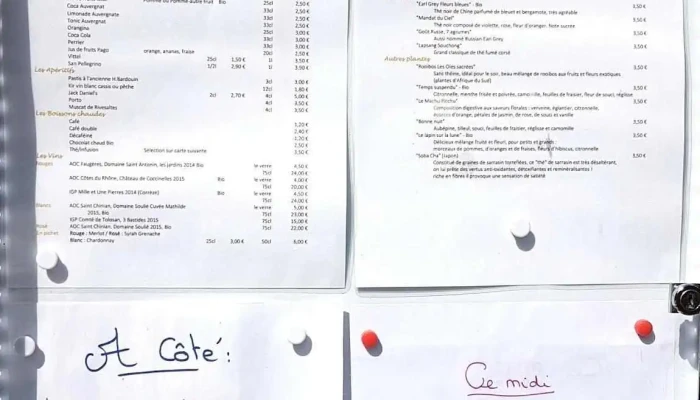 Coca Auvergnat 33cl 2,50 €
Limonade Auvergnate 33cl 2,50 €
Tonic Auvergnat 33cl 2,50 €
Orangina 25cl
Coca Cola 33cl 3,00 €
Perrier 33cl 3,00 €
Jus de fruits Pago orange, ananas, fraise 20cl 2,50 €
Vittel 25cl 1,50 € 1l 3,50 €
San Pellegrino 1/2l 2,90 € 1l 3,90 €
Les Apéritifs
Pastis à l'ancienne H.Bardouin 2cl 3,00 €
Kir vin blanc cassis ou pêche 12cl 3,80 €
Jack Daniel's 2cl 2,70 € 4cl 5,00 €
Porto 4cl 3,50 €
Muscat de Rivesaltes 4cl 3,50 €
Les Boissons chaudes
Café 1,20 €
Café double 2,40 €
Décaféiné
Chocolat chaud Bio 2,50 €
Thé/Infusion Sélection sur carte suivante 3,50 €
Les Vins
Rouges AOC Faugères, Domaine Saint Antonin, les jardins 2014 Bio le verre 4,50 €
75cl 24,00 €
AOC Côtes du Rhône, Château de Coccinelles 2015 Bio le verre 4,00 €
75cl 20,00 €
IGP Mille et Une Pierres 2014 (Corrèze) le verre 4,50 €
75cl 24,00 €
Blancs AOC Saint Chinian, Domaine Soulié Cuvée Mathilde le verre 5,00 €
2015, Bio 75cl 23,00 €
IGP Comté de Tolosan, 3 Bastides 2015 75cl 15,00 €
Rosé AOC Saint Chinian, Domaine Soulié 2015, Bio 75cl 22,00 €
En pichet Rouge : Merlot / Rosé : Syrah Grenache
Blanc : Chardonnay 25cl 3,00 € 50cl 6,00 €
"Earl Grey Fleurs bleues" - Bio 3,50 €
Thé noir de Chine parfumé de bleuet et bergamote, très agréable
"Mandat du Ciel" 3,50 €
Thé noir composé de violette, rose, fleur d'oranger. Note sucrée
"Goût Russe, 7 agrumes" 3,50 €
Aussi nommé Russian Earl Grey
"Lapsang Souchong" 3,50 €
Grand classique de thé fumé corsé
Autres plantes
"Rooibos Les Oies sacrées" 3,50 €
Sans théine, idéal pour le soir, beau mélange de rooibos aux fruits et fleurs exotiques
(plantes d'Afrique du Sud)
"Temps suspendu" - Bio 3,50 €
Citronnelle, menthe fruitée et poivrée, camomille, feuilles de fraisier, fleur de souci, réglisse
"Le Machu Picchu" 3,50 €
Composition digestive aux saveurs florales : verveine, églantier, citronnelle,
écorces d'orange, pétales de jasmin, de rose, de souci et vanille
"Bonne nuit" 3,50 €
Aubépine, tilleul, souci, feuilles de fraisier, réglisse et camomille
"Le lapin sur la lune" - Bio 3,50 €
Délicieux mélange fruité et fleuri, pour petits et grands
morceaux de pommes, d'oranges et de fraises, fleurs d'hibiscus, citronnelle
"Soba Cha" (Japon) 3,50 €
Constitué de graines de sarrasin torréfiées, ce "thé" de sarrasin est très désaltérant,
on lui prête des vertus anti-oxydantes, détoxifiantes et reminéralisantes !
riche en fibres il provoque une sensation de satiété
A Côté :
Ce midi